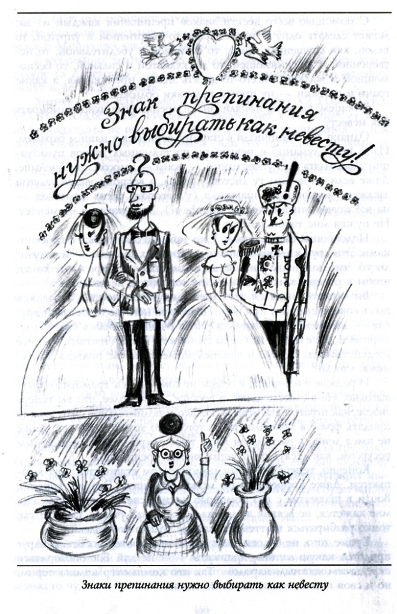 Знак препинания
нужно выбирать как невесту!
Знаки препинания нужно выбирать как невесту